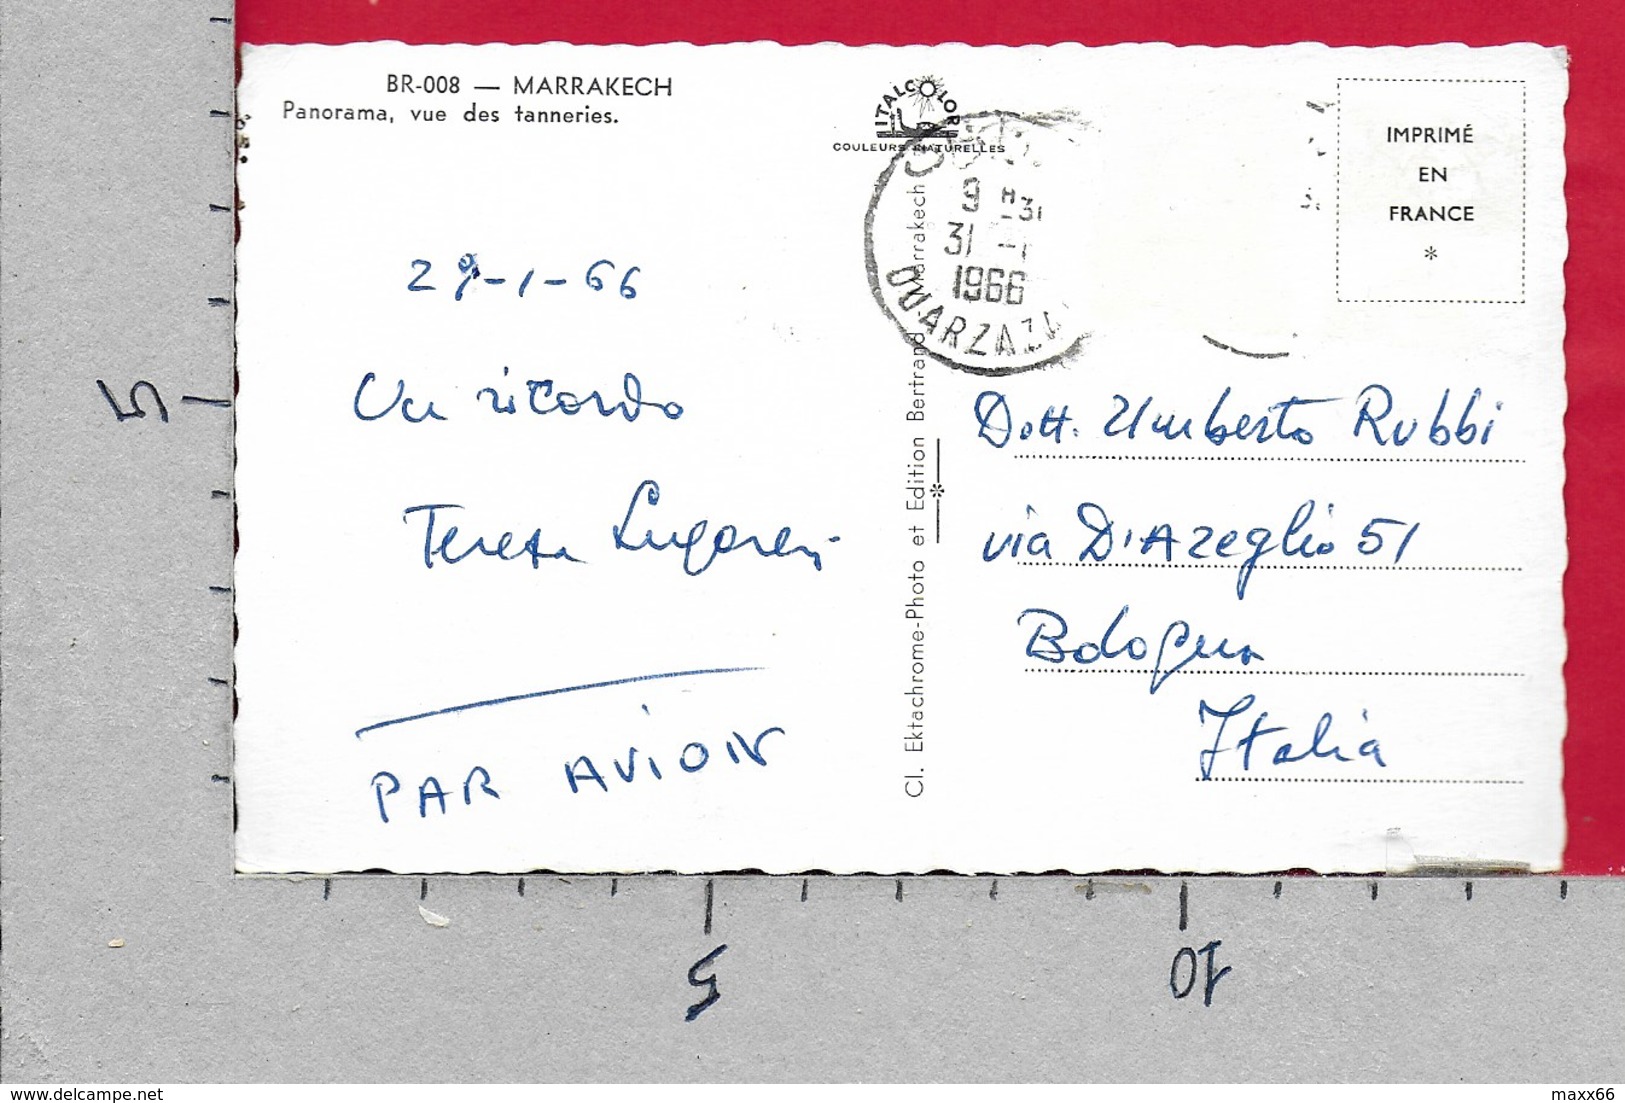 BR-008 — MARRAKECH
Panorama, vue des tanneries.
ITALCOLOR
COULEURS NATURELLES
9 H 31
31 -1
1966
OUARZAZ
IMPRIMÉ
EN
FRANCE
*
29-1-66
Un ricordo
Teresa
PAR AVION
Cl. Ektachrome-Photo et Edition Bertrand Marrakech
Dott. Umberto Rubbi
via D'Azeglio 51
Bologna
Italia
5
5
10
delcampe.net
maxx66